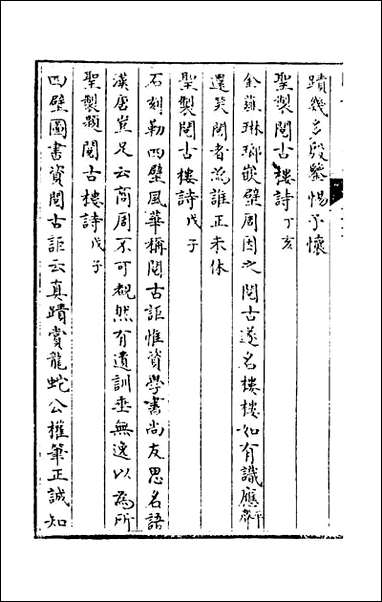 蹟幾多殷鑒惕予懷
聖製閱古樓詩丁亥
金薤琳瑯嵌壁周因之閱古遂名樓樓如有識應平聲
還笑閱者為誰正未休
聖製閱古樓詩戊子
石刻勒四壁風華稱閱古詎惟資學書尚友思名語
漢唐豈足云商周不可覩然有遺訓垂無逸以為所
聖製題閱古樓詩戊子
四壁圖書資閱古詎云真蹟賞龍蛇公權筆正誠知